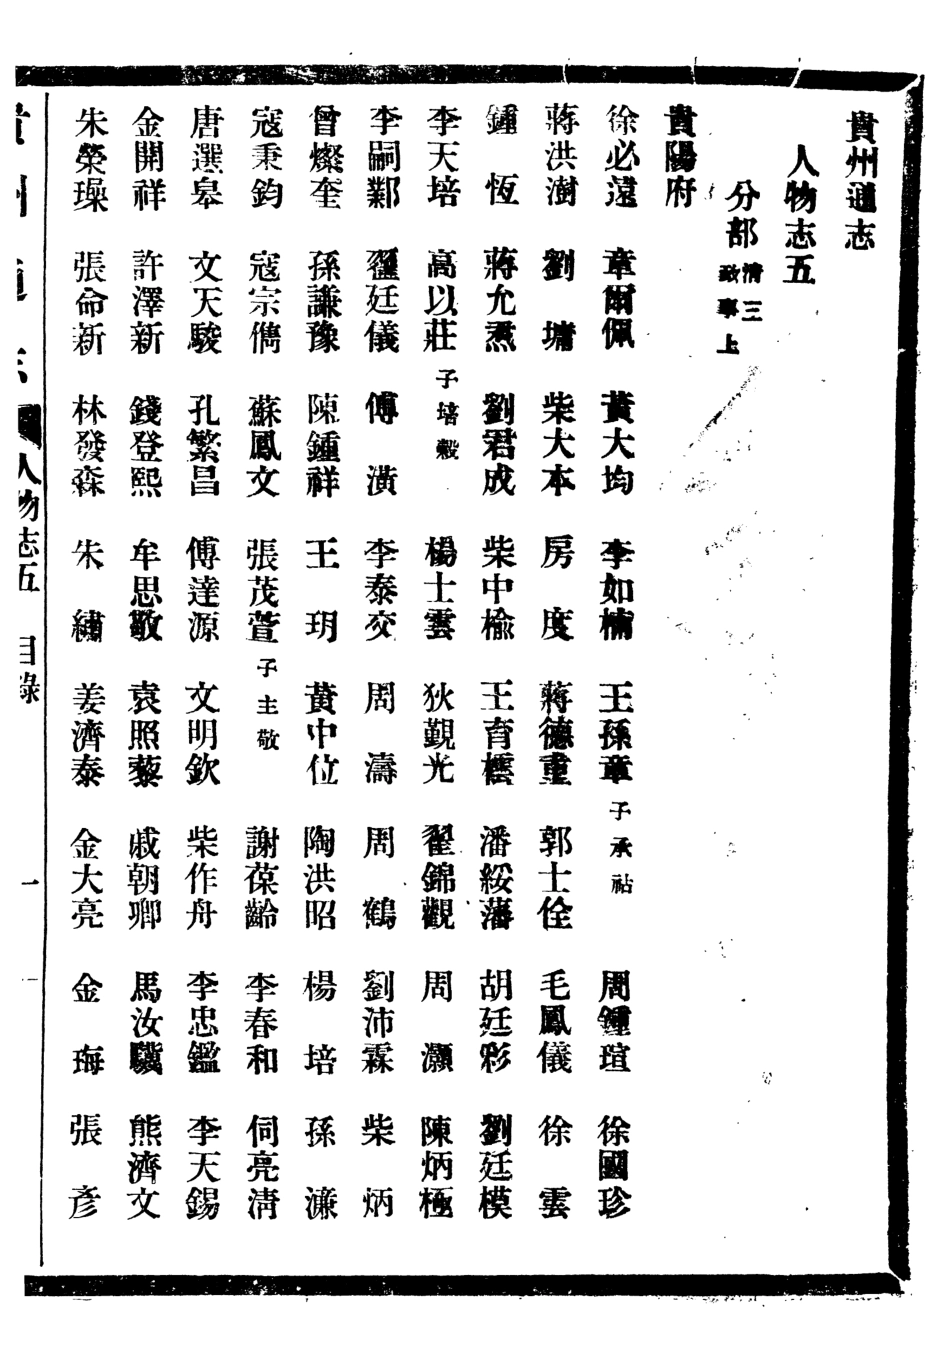 貴州通志
人物志五
分部 清三 政事上
貴陽府
徐必遠 章爾佩 黃大均 李如楠 王孫章 子承祜 周鍾瑄 徐國珍
蔣洪澍 劉墉 柴大本 房度 蔣德重 郭士佺 毛鳳儀 徐雲
鍾恆 蔣允焄 劉君成 柴中榆 王育櫄 潘綏藩 胡廷彩 劉廷模
李天培 高以莊 子培穀 楊士雲 狄觀光 翟錦觀 周灝 陳炳極
李嗣鄴 翟廷儀 傅潢 李泰交 周濤 周鶴 劉沛霖 柴炳
曾燦奎 孫謙豫 陳鍾祥 王玥 黃中位 陶洪昭 楊培 孫濂
寇秉鈞 寇宗儁 蘇鳳文 張茂萱 子主敬 謝葆齡 李春和 伺亮清
唐選皋 文天駿 孔繁昌 傅達源 文明欽 柴作舟 李忠鑑 李天錫
金開祥 許澤新 錢登熙 牟思敬 袁照藜 戚朝卿 馬汝驥 熊濟文
朱榮璪 張命新 林發森 朱繡 姜濟泰 金大亮 金海 張彥
貴州通志 人物志五 目錄 一